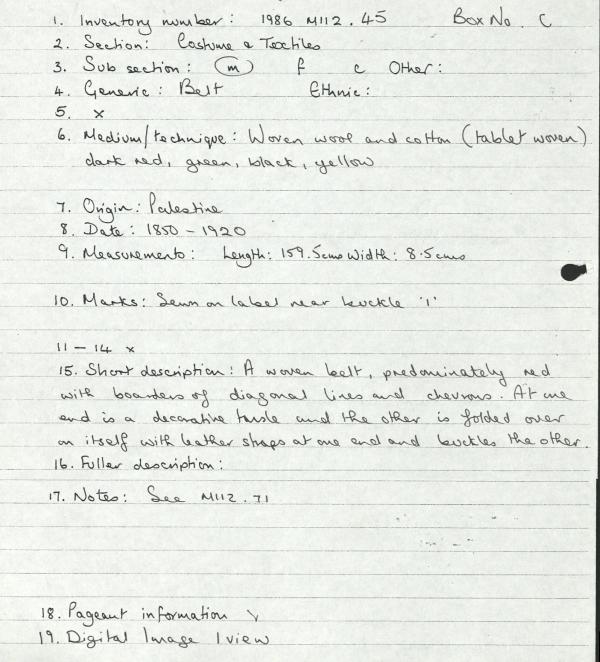 1. Inventory number: 1986 M112.45 Box No. C
2. Section: Costume & Textiles
3. Sub section: m f c Other:
4. Generic: Belt Ethnic:
5. x
6. Medium/technique: Woven wool and cotton (tablet woven)
dark red, green, black, yellow
7. Origin: Palestine
8. Date: 1850 - 1920
9. Measurements: Length: 159.5cms Width: 8.5cms
10. Marks: Sewn on label near buckle '1'
11 - 14 x
15. Short description: A woven belt, predominately red
with boarders of diagonal lines and chevrons. At one
end is a decorative tassle and the other is folded over
on itself with leather straps at one end and buckles the other.
16. Fuller description:
17. Notes: See M112.71
18. Pageant information
19. Digital Image 1 view